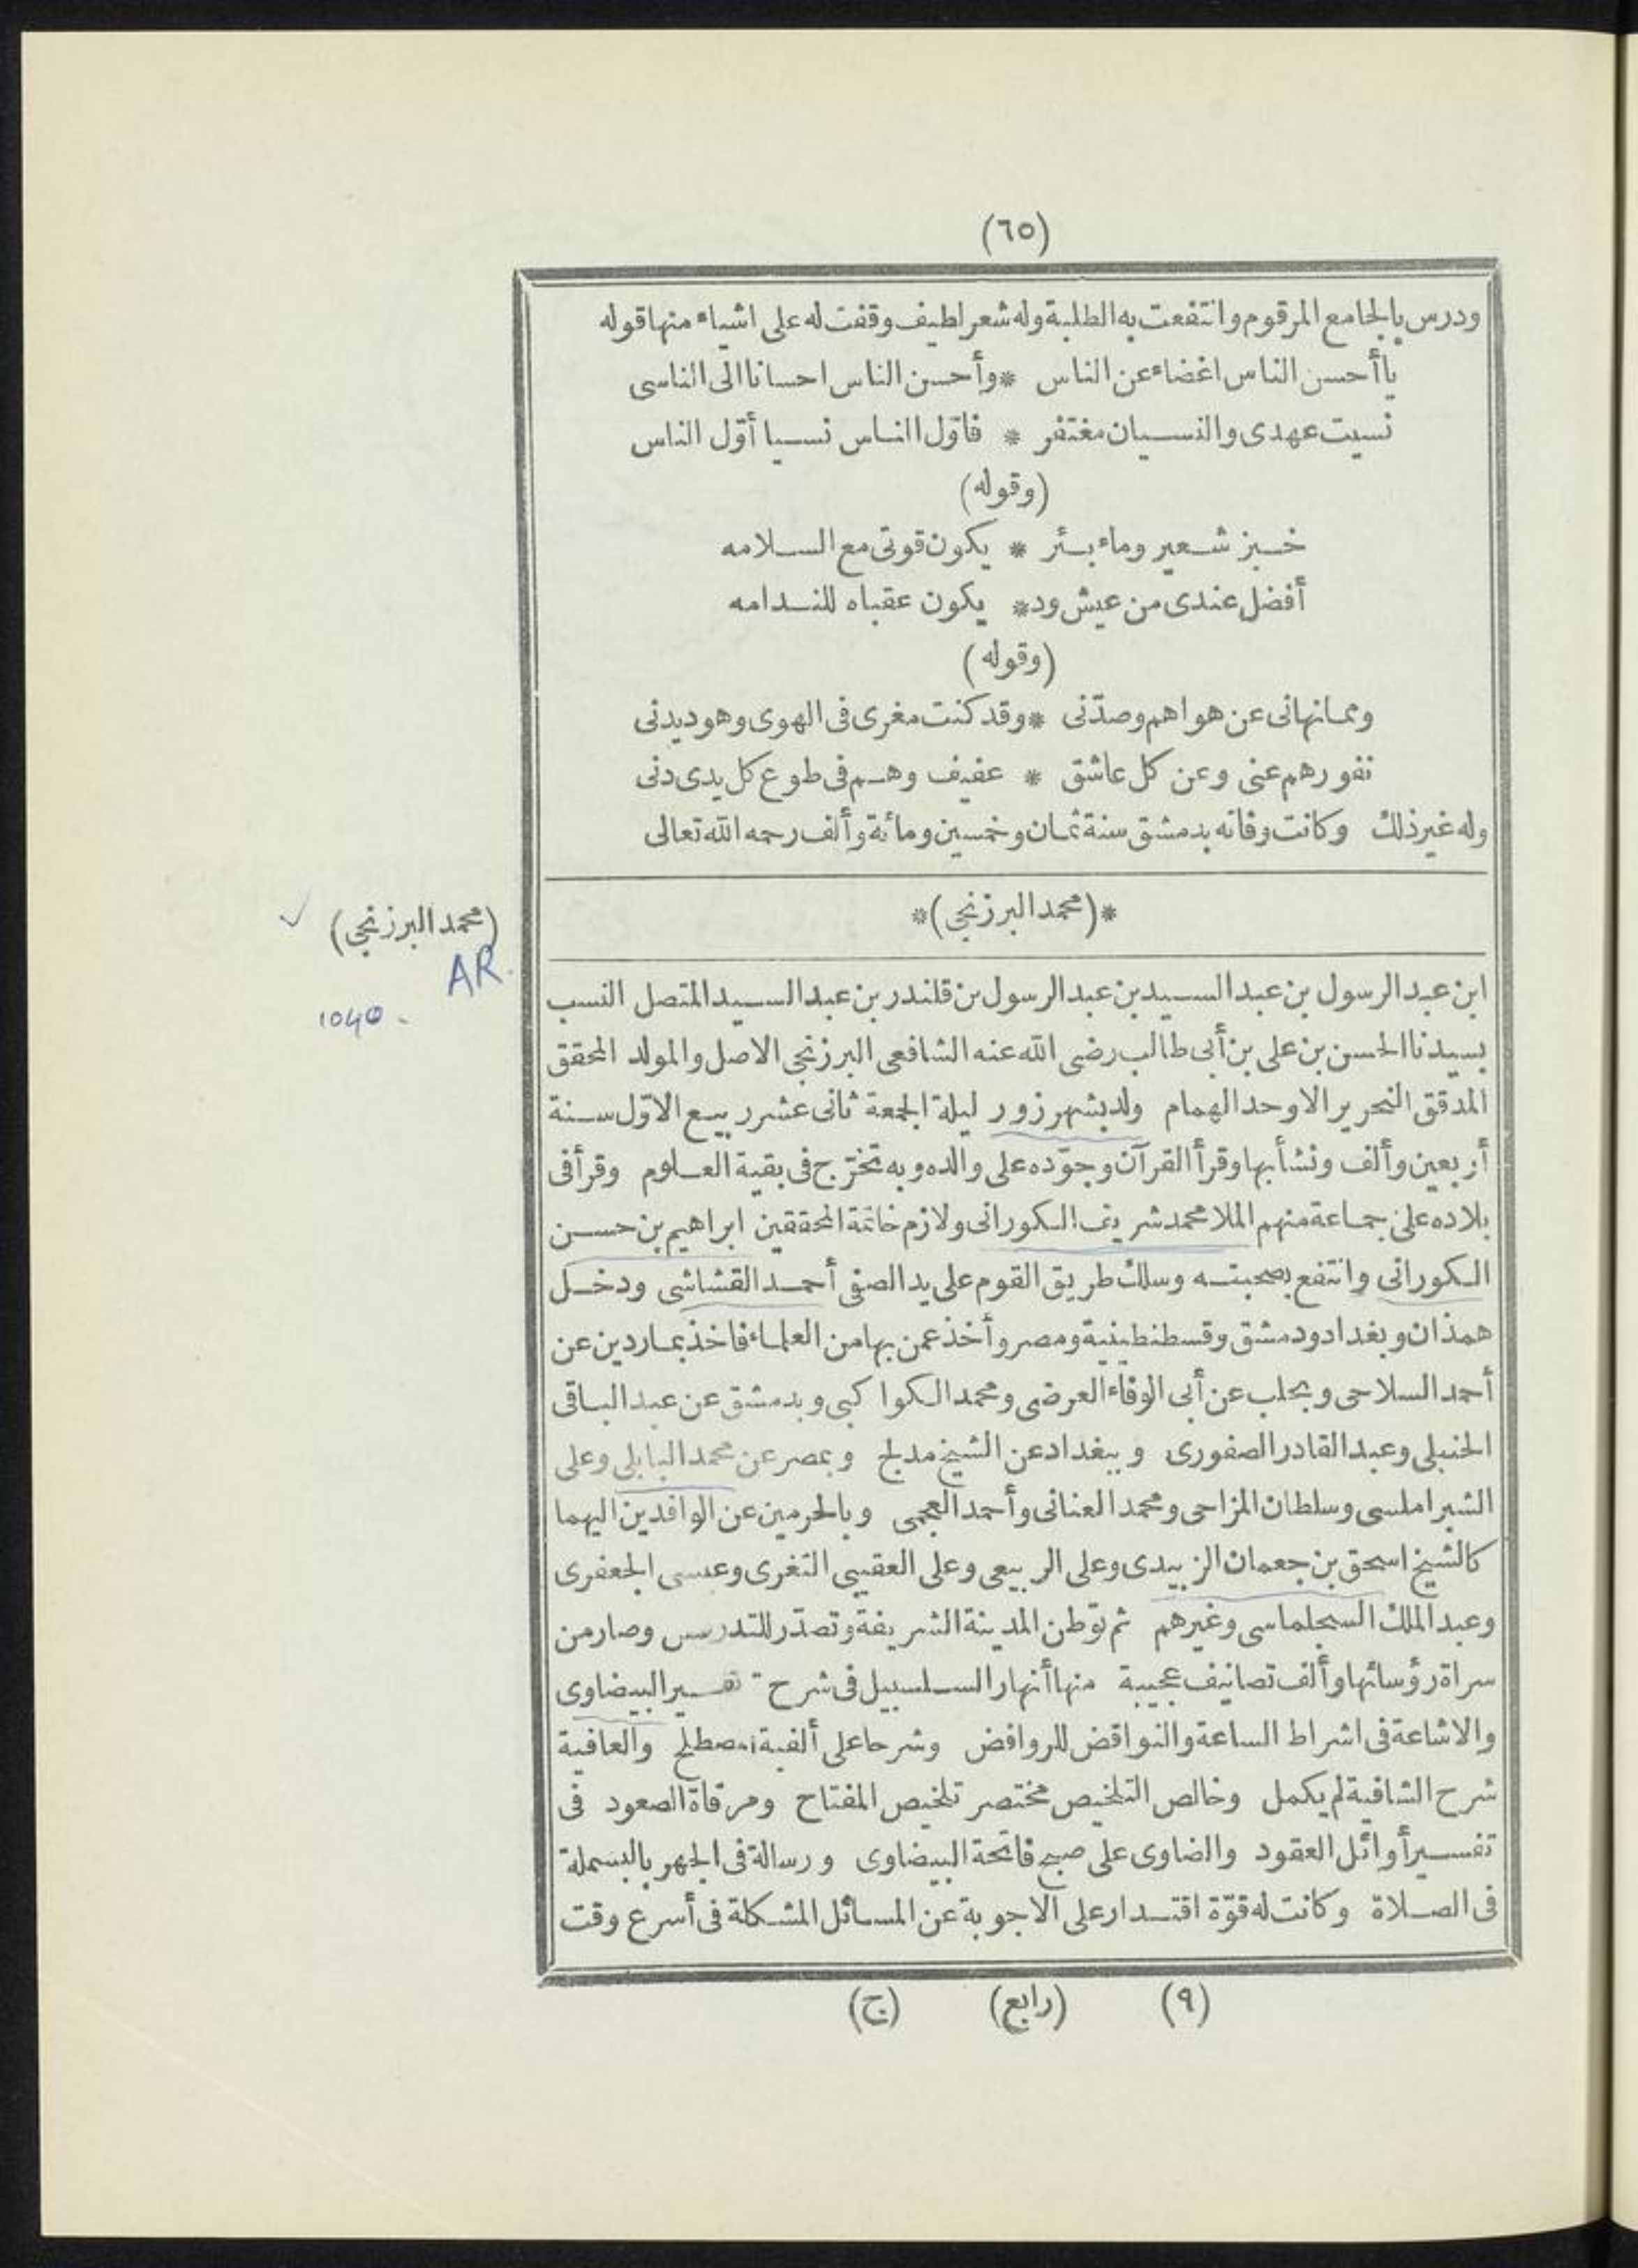 (٦٥)
ودرس بالجامع المرقوم وانتفعت به الطلبة وله شعر لطيف وقفت له على اشياء منها قوله
يا أحسن الناس اغضاء عن الناس * وأحسن الناس احسانا الى الناسى
نسيت عهدى والنسيان مغتفر * فاوّل الناس نسيا أوّل الناس
(وقوله)
خبز شعير وماء بئر * يكون قوتى مع السلامه
أفضل عندى من عيش ود * يكون عقباه للندامه
(وقوله)
ومما نهانى عن هواهم وصدّنى * وقد كنت مغرى فى الهوى وهو ديدنى
نفورهم عنى وعن كل عاشق * عفيف وهم فى طوع كل يدى دنى
وله غير ذلك وكانت وفاته بدمشق سنة ثمان وخمسين ومائة وألف رحمه الله تعالى
*(محمد البرزنجى)*
(محمد البرزنجى) ✓
AR.
1040 -
ابن عبد الرسول بن عبد السيد بن عبد الرسول بن قلندر بن عبد السيد المتصل النسب
بسيدنا الحسن بن على بن أبى طالب رضى الله عنه الشافعى البرزنجى الاصل والمولد المحقق
المدقق النحرير الاوحد الهمام ولد بشهرزور ليلة الجمعة ثانى عشر ربيع الاوّل سنة
أربعين وألف ونشأ بها وقرأ القرآن وجوّده على والده وبه تخرّج فى بقية العلوم وقرأ فى
بلاده على جماعة منهم الملا محمد شريف الكورانى ولازم خاتمة المحققين ابراهيم بن حسن
الكورانى وانتفع بصحبته وسلك طريق القوم على يد الصفى أحمد القشاشى ودخل
همذان وبغداد ودمشق وقسطنطينية ومصر وأخذ عمن بها من العلماء فاخذ بماردين عن
أحمد السلاحى وبحلب عن أبى الوفاء العرضى ومحمد الكواكبى وبدمشق عن عبد الباقى
الحنبلى وعبد القادر الصفورى وببغداد عن الشيخ مدلج وبمصر عن محمد البابلى وعلى
الشبراملسى وسلطان المزاحى ومحمد العنانى وأحمد العجمى وبالحرمين عن الوافدين اليهما
كالشيخ اسحق بن جعمان الزبيدى وعلى الربيعى وعلى العقيبى التغرى وعيسى الجعفرى
وعبد الملك السجلماسى وغيرهم ثم توّطن المدينة الشريفة وتصدّر للتدريس وصار من
سراة رؤسائها وألف تصانيف عجيبة منها أنهار السلسبيل فى شرح تفسير البيضاوى
والاشاعة فى اشراط الساعة والنواقض للروافض وشرحا على ألفية المصطلح والعافية
شرح الشافية لم يكمل وخالص التلخيص مختصر تلخيص المفتاح ومرقاة الصعود فى
تفسير أوائل العقود والضاوى على صبح فاتحة البيضاوى ورسالة فى الجهر بالبسملة
فى الصلاة وكانت له قوّة اقتدار على الاجوبة عن المسائل المشكلة فى أسرع وقت
(٩) (رابع) (ج)